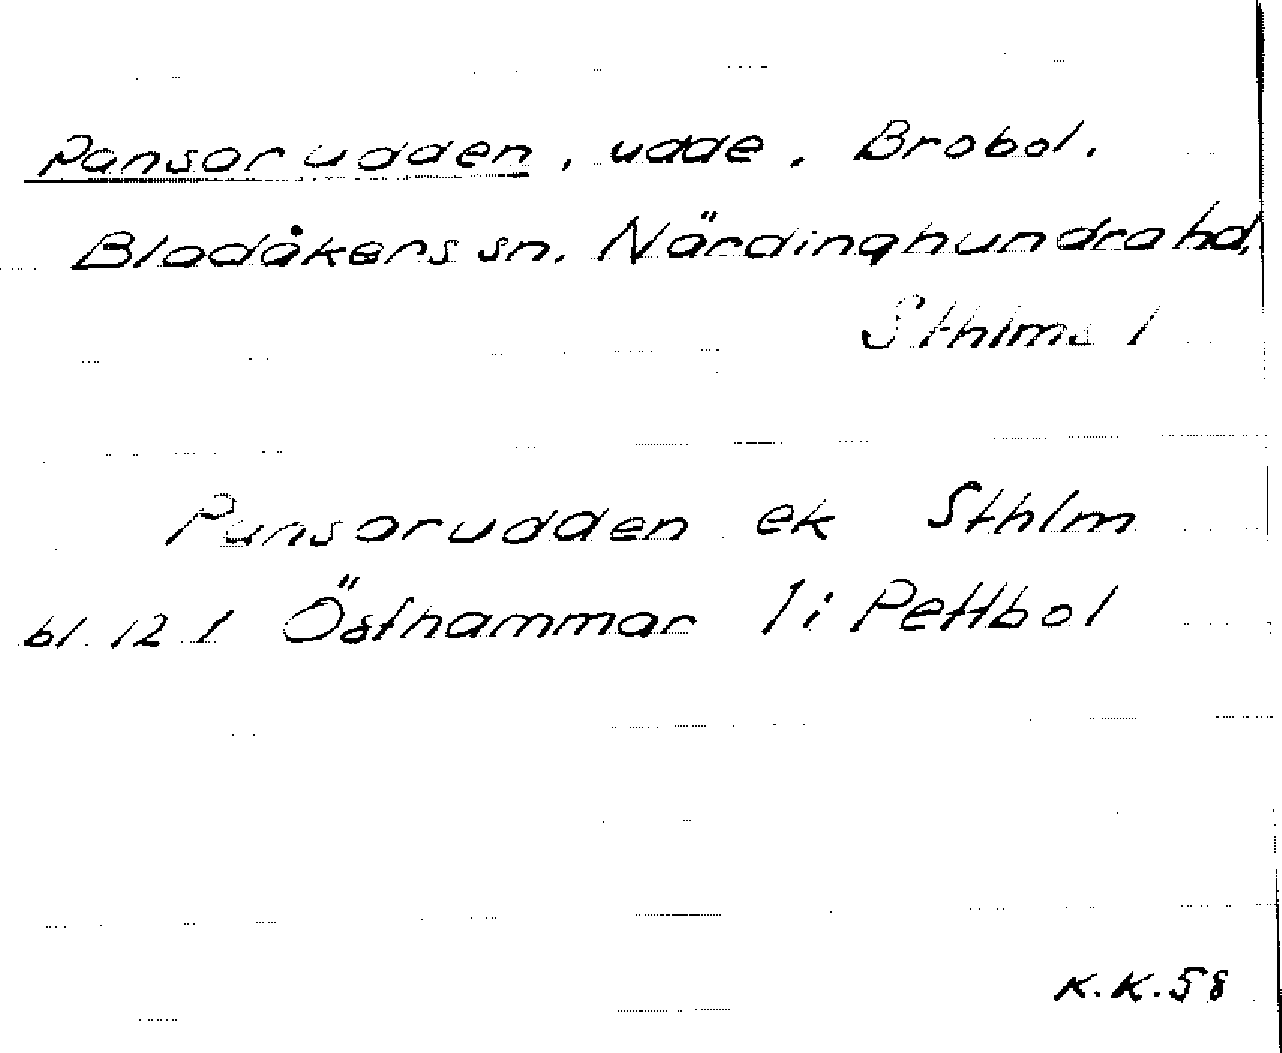 Pansarudden, udde, Brobol.
Bladåkers sn. Närdinghundra hd,
Sthlms l
Pansarudden ek Sthlm
bl. 12 l Östhammar 1 i Pettbol
K.K.58